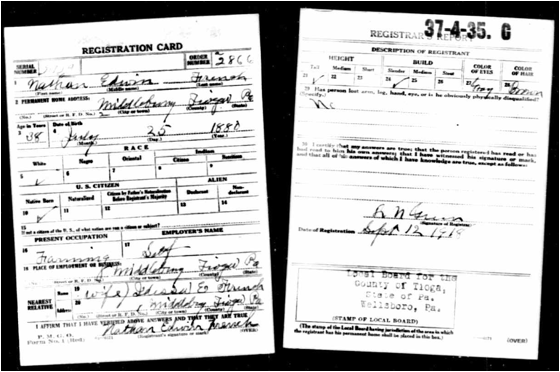 REGISTRATION CARD
SERIAL NUMBER
ORDER NUMBER 2866
1 Nathan Edwin French
(First name) (Middle name) (Last name)
2 PERMANENT HOME ADDRESS:
Middlebury Tioga Pa
(No.) (Street or R. F. D. No.) (City or town) (County) (State)
Age in Years
Date of Birth
3 38 4 July 25 1880
(Month.) (Day.) (Year.)
RACE
White Negro Oriental Indian
Citizen Noncitizen
5 6 7 8 9
U. S. CITIZEN ALIEN
Native Born Naturalized Citizen by Father's Naturalization Before Registrant's Majority Declarant Non-declarant
10 11 12 13 14
15
If not a citizen of the U. S., of what nation are you a citizen or subject?
PRESENT OCCUPATION EMPLOYER'S NAME
16 Farming 17 Self
18 PLACE OF EMPLOYMENT OR BUSINESS:
Middlebury Tioga Pa
(No.) (Street or R. F. D. No.) (City or town) (County) (State)
NEAREST RELATIVE
Name 19 (wife) E French
Address 20 Middlebury Tioga Pa
(No.) (Street or R. F. D. No.) (City or town) (County) (State)
I AFFIRM THAT I HAVE VERIFIED ABOVE ANSWERS AND THAT THEY ARE TRUE
P. M. G. O.
Form No. 1 (Red) Nathan Edwin French
(Registrant's signature or mark) (OVER)
37-4-35. C
REGISTRAR'S REPORT
DESCRIPTION OF REGISTRANT
HEIGHT BUILD COLOR OF EYES COLOR OF HAIR
Tall Medium Short Slender Medium Stout
21 22 23 24 25 26 27 Gray 28 Brown
29 Has person lost arm, leg, hand, eye, or is he obviously physically disqualified?
(Specify.) No
30 I certify that my answers are true; that the person registered has read or has
had read to him his own answers; that I have witnessed his signature or mark,
and that all of his answers of which I have knowledge are true, except as follows:
(Signature of Registrar)
Date of Registration Sept 12 1918
Local Board for the
County of Tioga,
State of Pa.
Wellsboro, Pa.
(STAMP OF LOCAL BOARD)
(The stamp of the Local Board having jurisdiction of the area in which
the registrant has his permanent home shall be placed in this box.)
(OVER)